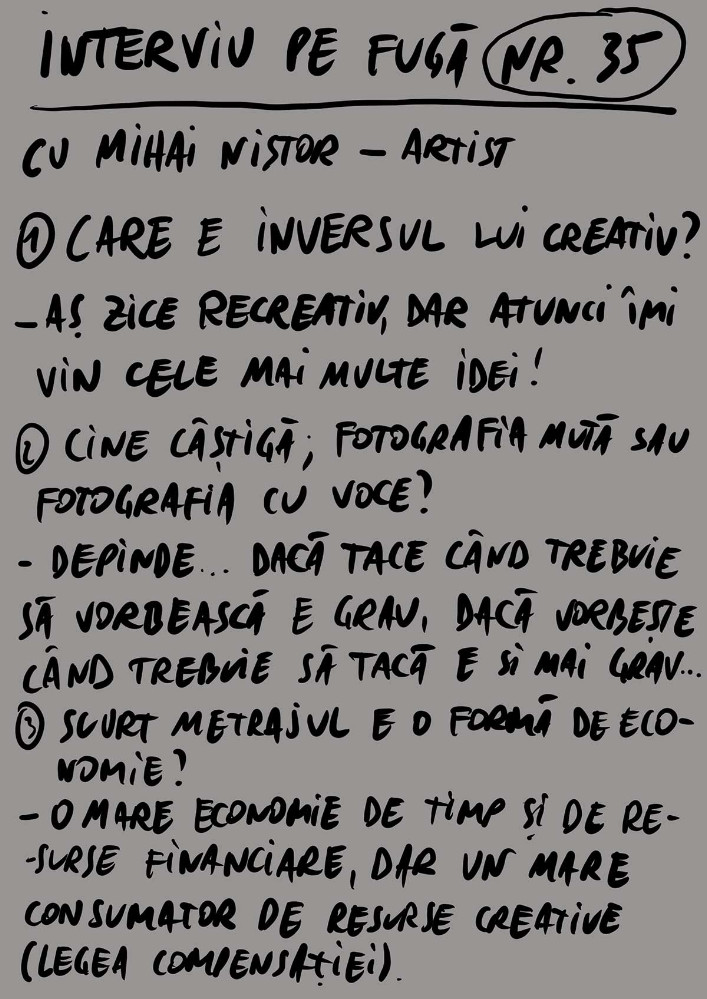 INTERVIU PE FUGĂ NR. 35
CU MIHAI NISTOR – ARTIST
① CARE E INVERSUL LUI CREATIV?
– AȘ ZICE RECREATIV, DAR ATUNCI ÎMI
VIN CELE MAI MULTE IDEI!
② CINE CÂȘTIGĂ; FOTOGRAFIA MUTĂ SAU
FOTOGRAFIA CU VOCE?
- DEPINDE... DACĂ TACE CÂND TREBUIE
SĂ VORBEASCĂ E GRAV, DACĂ VORBEȘTE
CÂND TREBUIE SĂ TACĂ E SI MAI GRAV...
③ SCURT METRAJUL E O FORMĂ DE ECO-
NOMIE?
– O MARE ECONOMIE DE TIMP ȘI DE RE-
-SURSE FINANCIARE, DAR UN MARE
CONSUMATOR DE RESURSE CREATIVE
(LEGEA COMPENSAȚIEI).